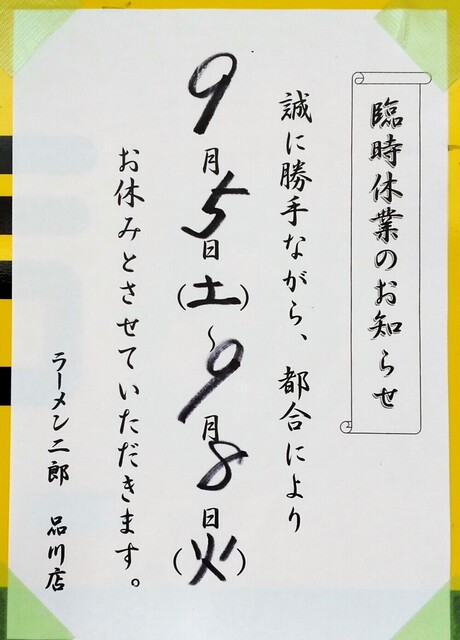 臨時休業のお知らせ
誠に勝手ながら、都合により
9月5日(土)~9月8日(火)
お休みとさせていただきます。
ラーメン二郎 品川店